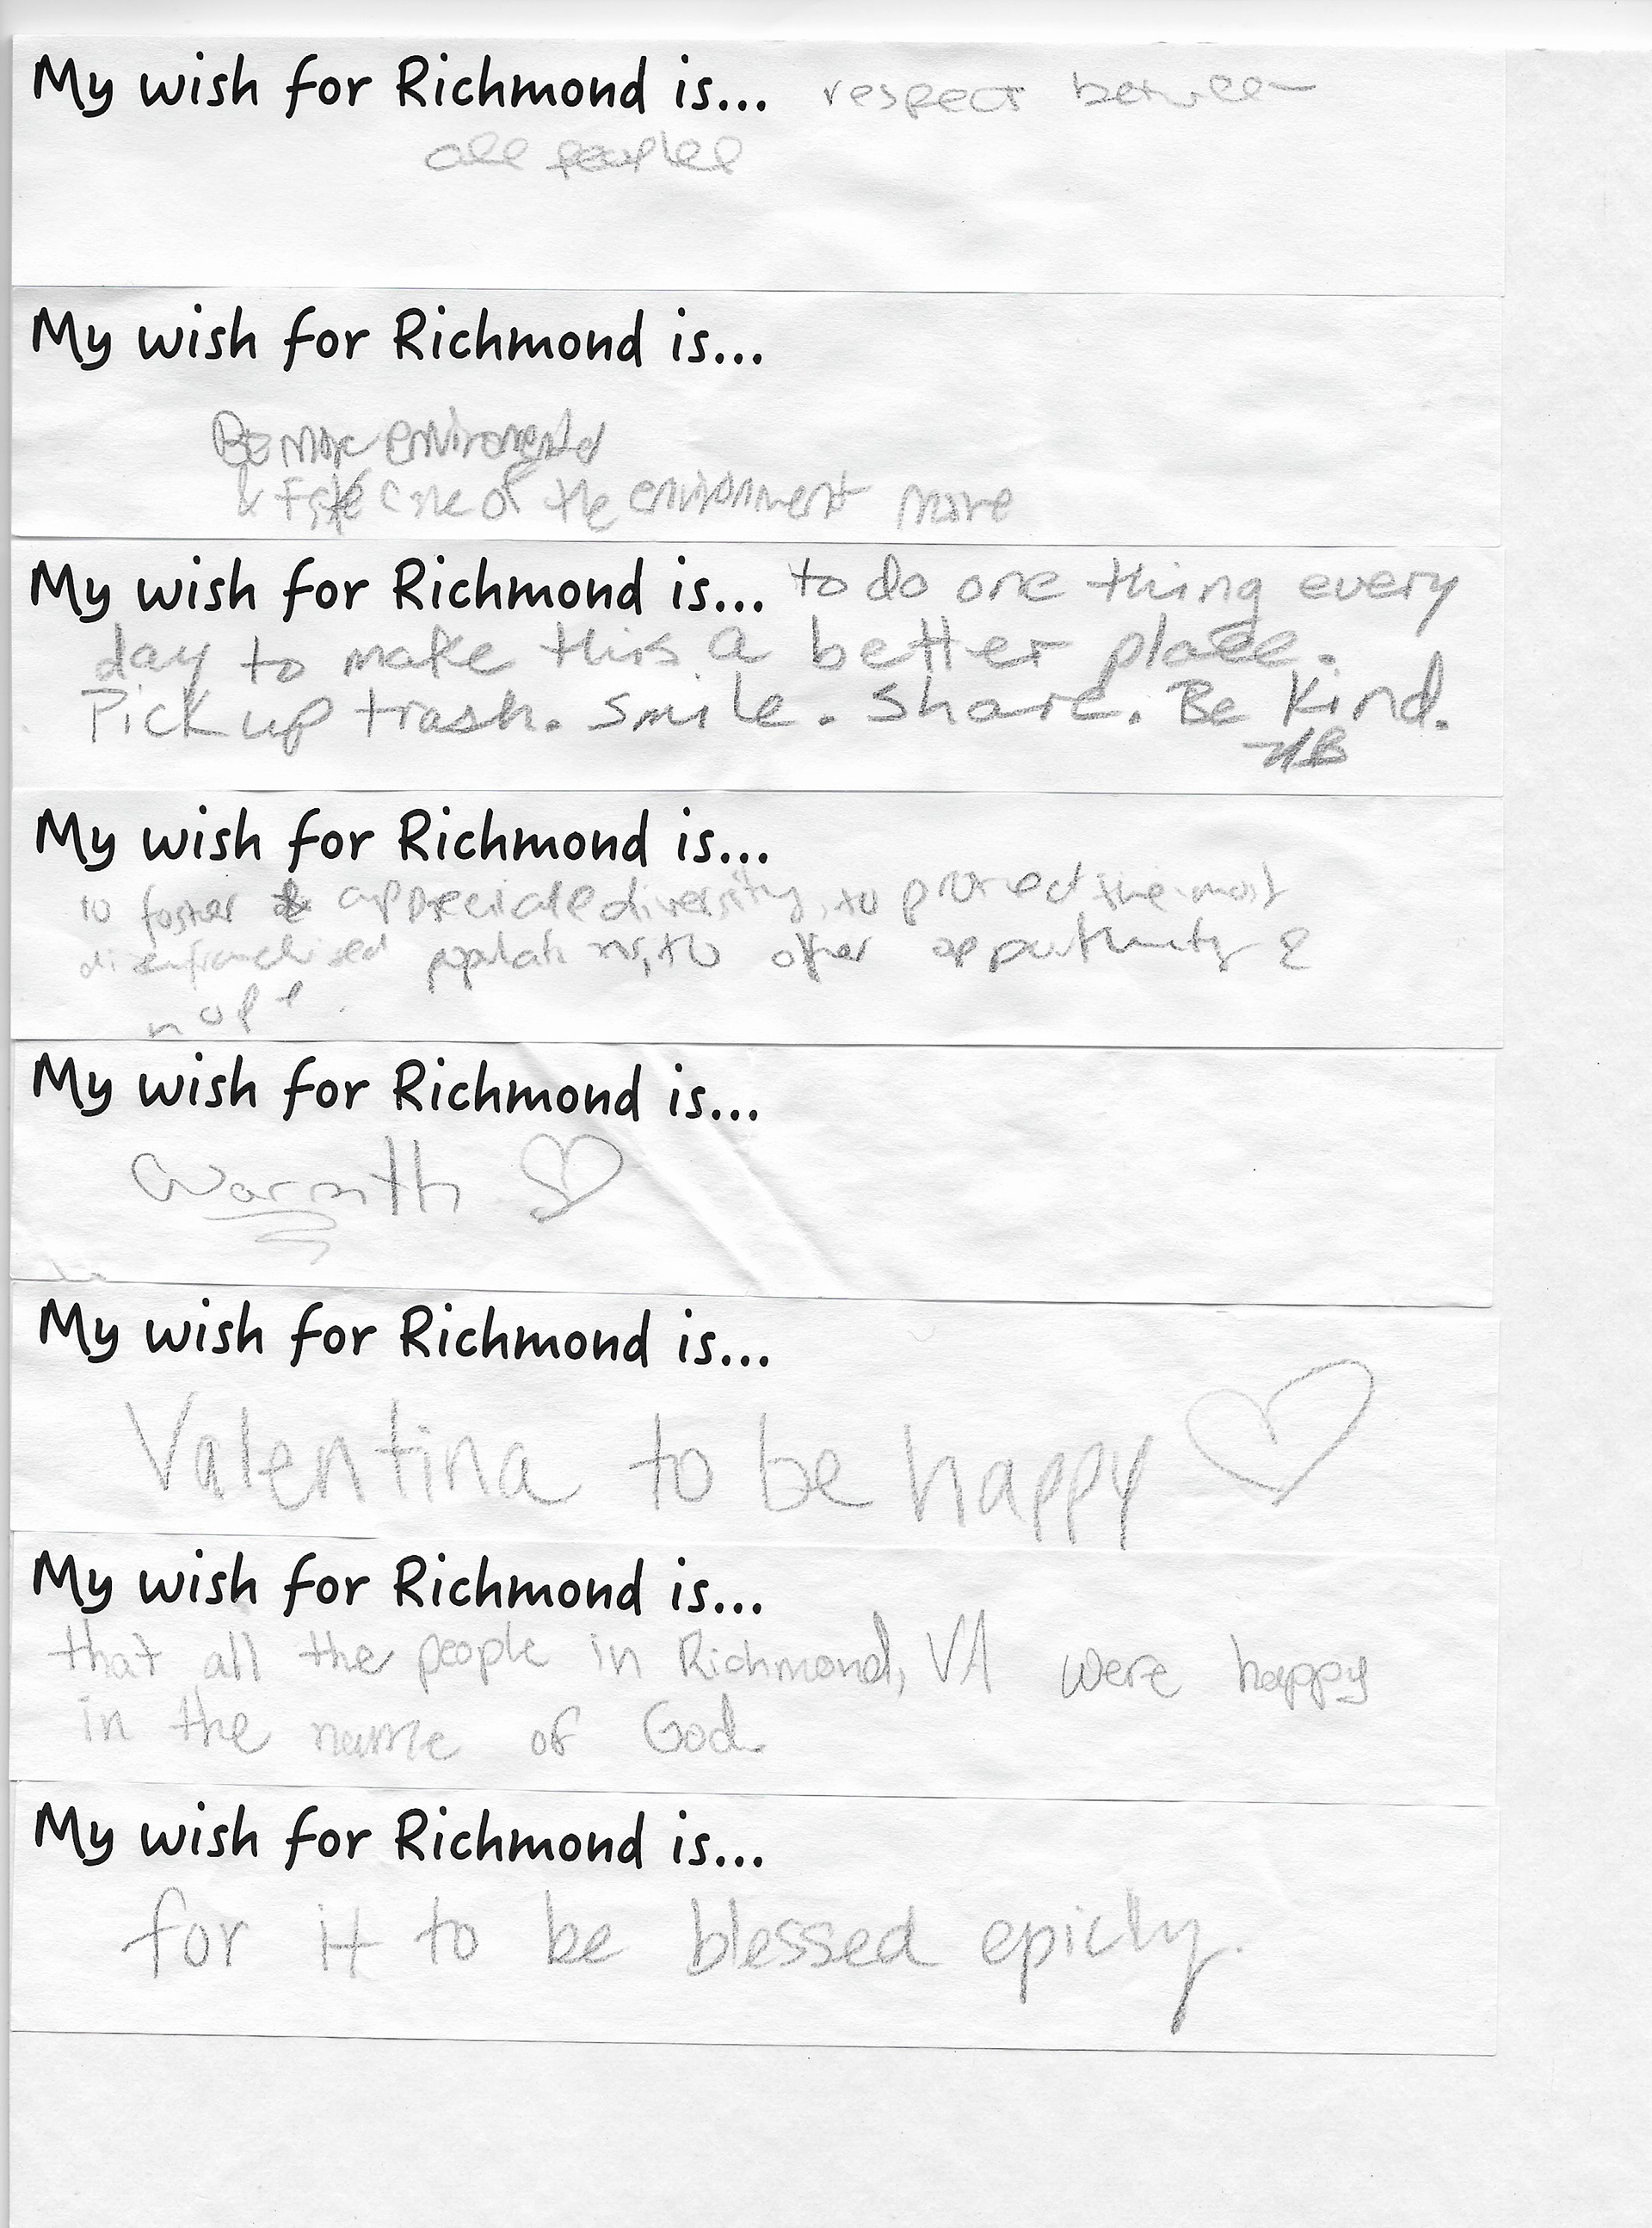 My wish for Richmond is... respect between
all peoples
My wish for Richmond is...
Be more
& Take care of the environment more
My wish for Richmond is... to do one thing every
day to make this a better place.
Pick up trash. Smile. Share. Be Kind.
My wish for Richmond is...
to foster & appreciate diversity, to the most
disenfranchised to offer opportunity &
hope.
My wish for Richmond is...
Warmth
My wish for Richmond is...
Valentina to be happy
My wish for Richmond is...
that all the people in Richmond, VA were happy
in the name of God
My wish for Richmond is...
for it to be blessed epicly.